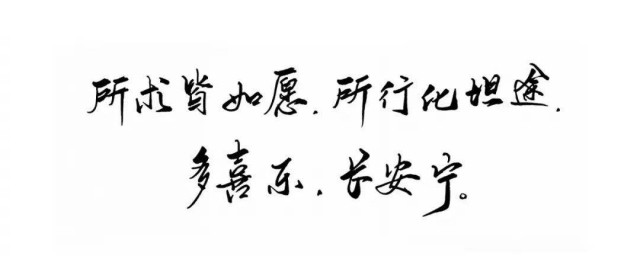 所求皆如愿,所行化坦途,
多喜乐,长安宁。